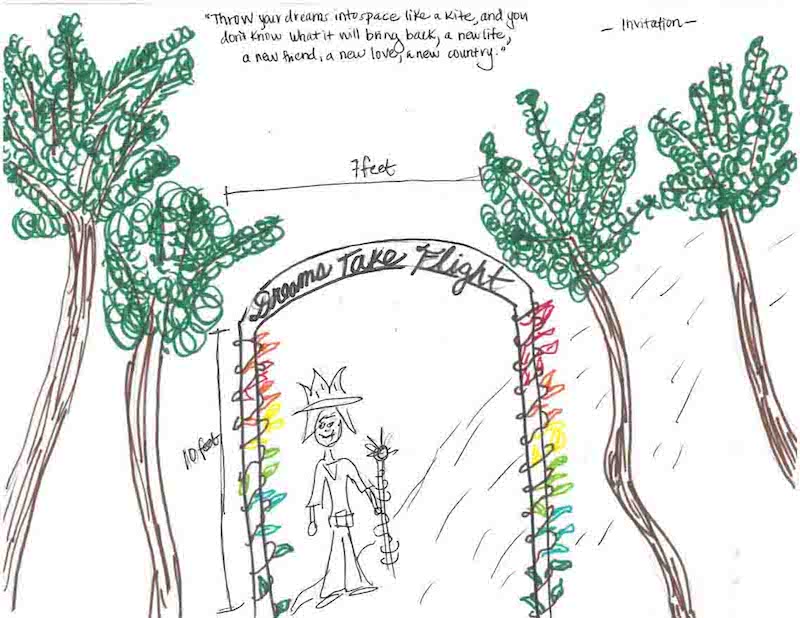 "Throw your dreams into space like a kite, and you
don't know what it will bring back, a new life,
a new friend, a new love, a new country."
- Invitation -
7 feet
Dreams Take Flight
10 feet